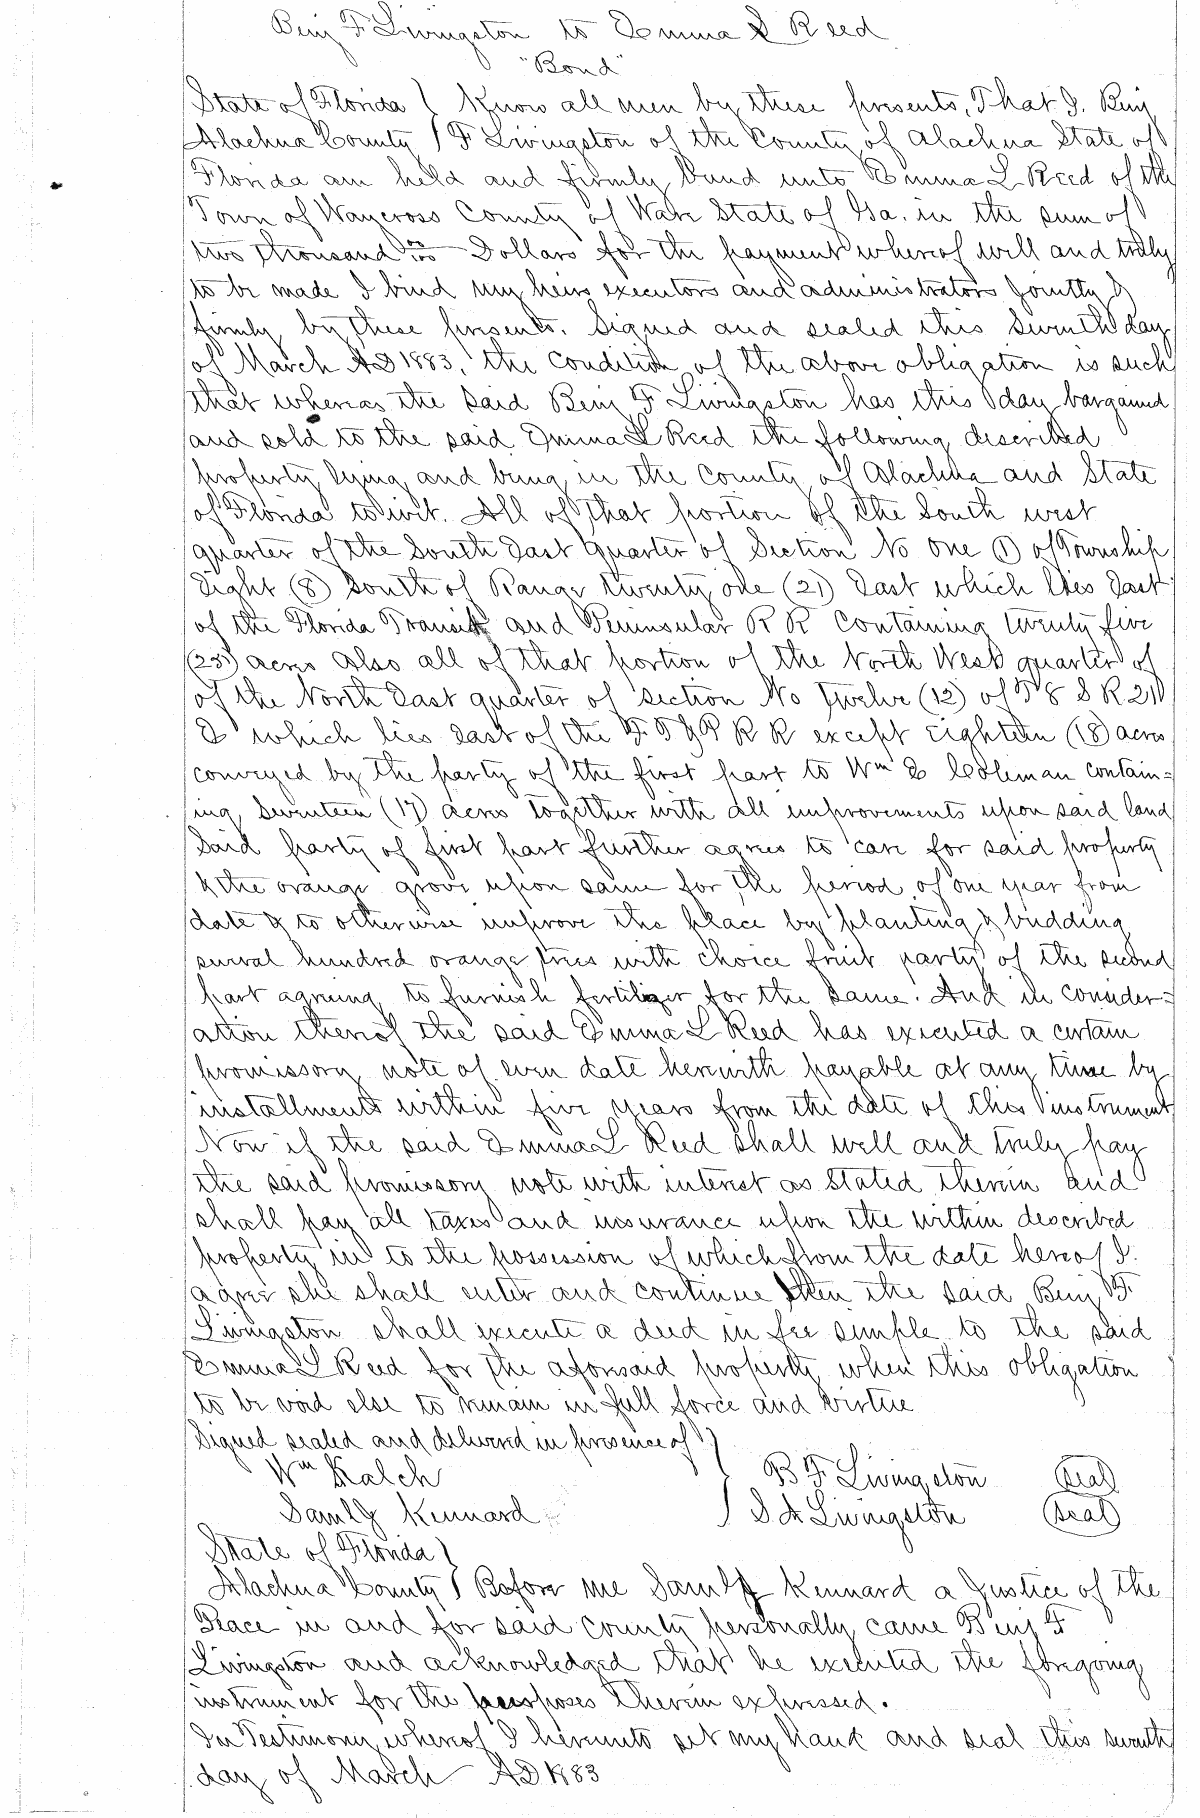 Benj F Livingston to Emma L Reed
"Bond"
State of Florida } Know all men by these presents, That I. Benj
Alachua County } F Livingston of the County of Alachua State of
Florida am held and firmly bund unto Emma L Reed of the
Town of Waycross County of Ware State of Ga. in the sum of
two thousand 00/100 Dollars for the payment whereof will and truly
to be made I bind my heirs executors and administrators jointly &
firmly by these presents. Signed and sealed this Seventh day
of March AD 1883, the condition of the above obligation is such
that whereas the said Benj F Livingston has this day bargained
and sold to the said Emma L Reed the following described
property lying and being in the County of Alachua and State
of Florida to wit. All of that portion of the South west
quarter of the South East quarter of Section No One (1) of Township
Eight (8) South of Range twenty one (21) East which lies East
of the Florida Transit and Peninsular R R Containing twenty five
(25) acres Also all of that portion of the North West quarter of
of the North East quarter of section No Twelve (12) of T 8 S R 21
E which lies east of the F. T & P R R except Eighteen (18) acres
conveyed by the party of the first part to Wm E Coleman contain=
ing Seventeen (17) acres together with all improvements upon said land
Said party of first part further agrees to care for said property
& the orange grove upon same for the period of one year from
date & to otherwise improve the place by planting & budding
several hundred orange trees with choice fruit party of the second
part agreeing to furnish fertilizer for the same. And in consider=
ation thereof the said Emma L Reed has executed a certain
promissory note of even date herewith payable at any time by
installments within five years from the date of this instrument
Now if the said Emma L Reed shall well and truly pay
the said promissory note with interest as stated therein and
shall pay all taxes and insurance upon the within described
property in to the possession of which from the date hereof I.
agree she shall enter and continue then the said Benj F.
Livingston shall execute a deed in fee simple to the said
Emma L Reed for the aforesaid property when this obligation
to be void else to remain in full force and virtue
Signed sealed and delivered in presence of }
Wm Kalch } B F Livingston (seal)
Saml J Kennard } S A Livingston (seal)
State of Florida }
Alachua County } Before me Saml J Kennard a Justice of the
Peace in and for said County personally came Benj F
Livingston and acknowledged that he executed the foregoing
instrument for the purposes therein expressed.
In Testimony whereof I hereunto set my hand and seal this seventh
day of March AD 1883